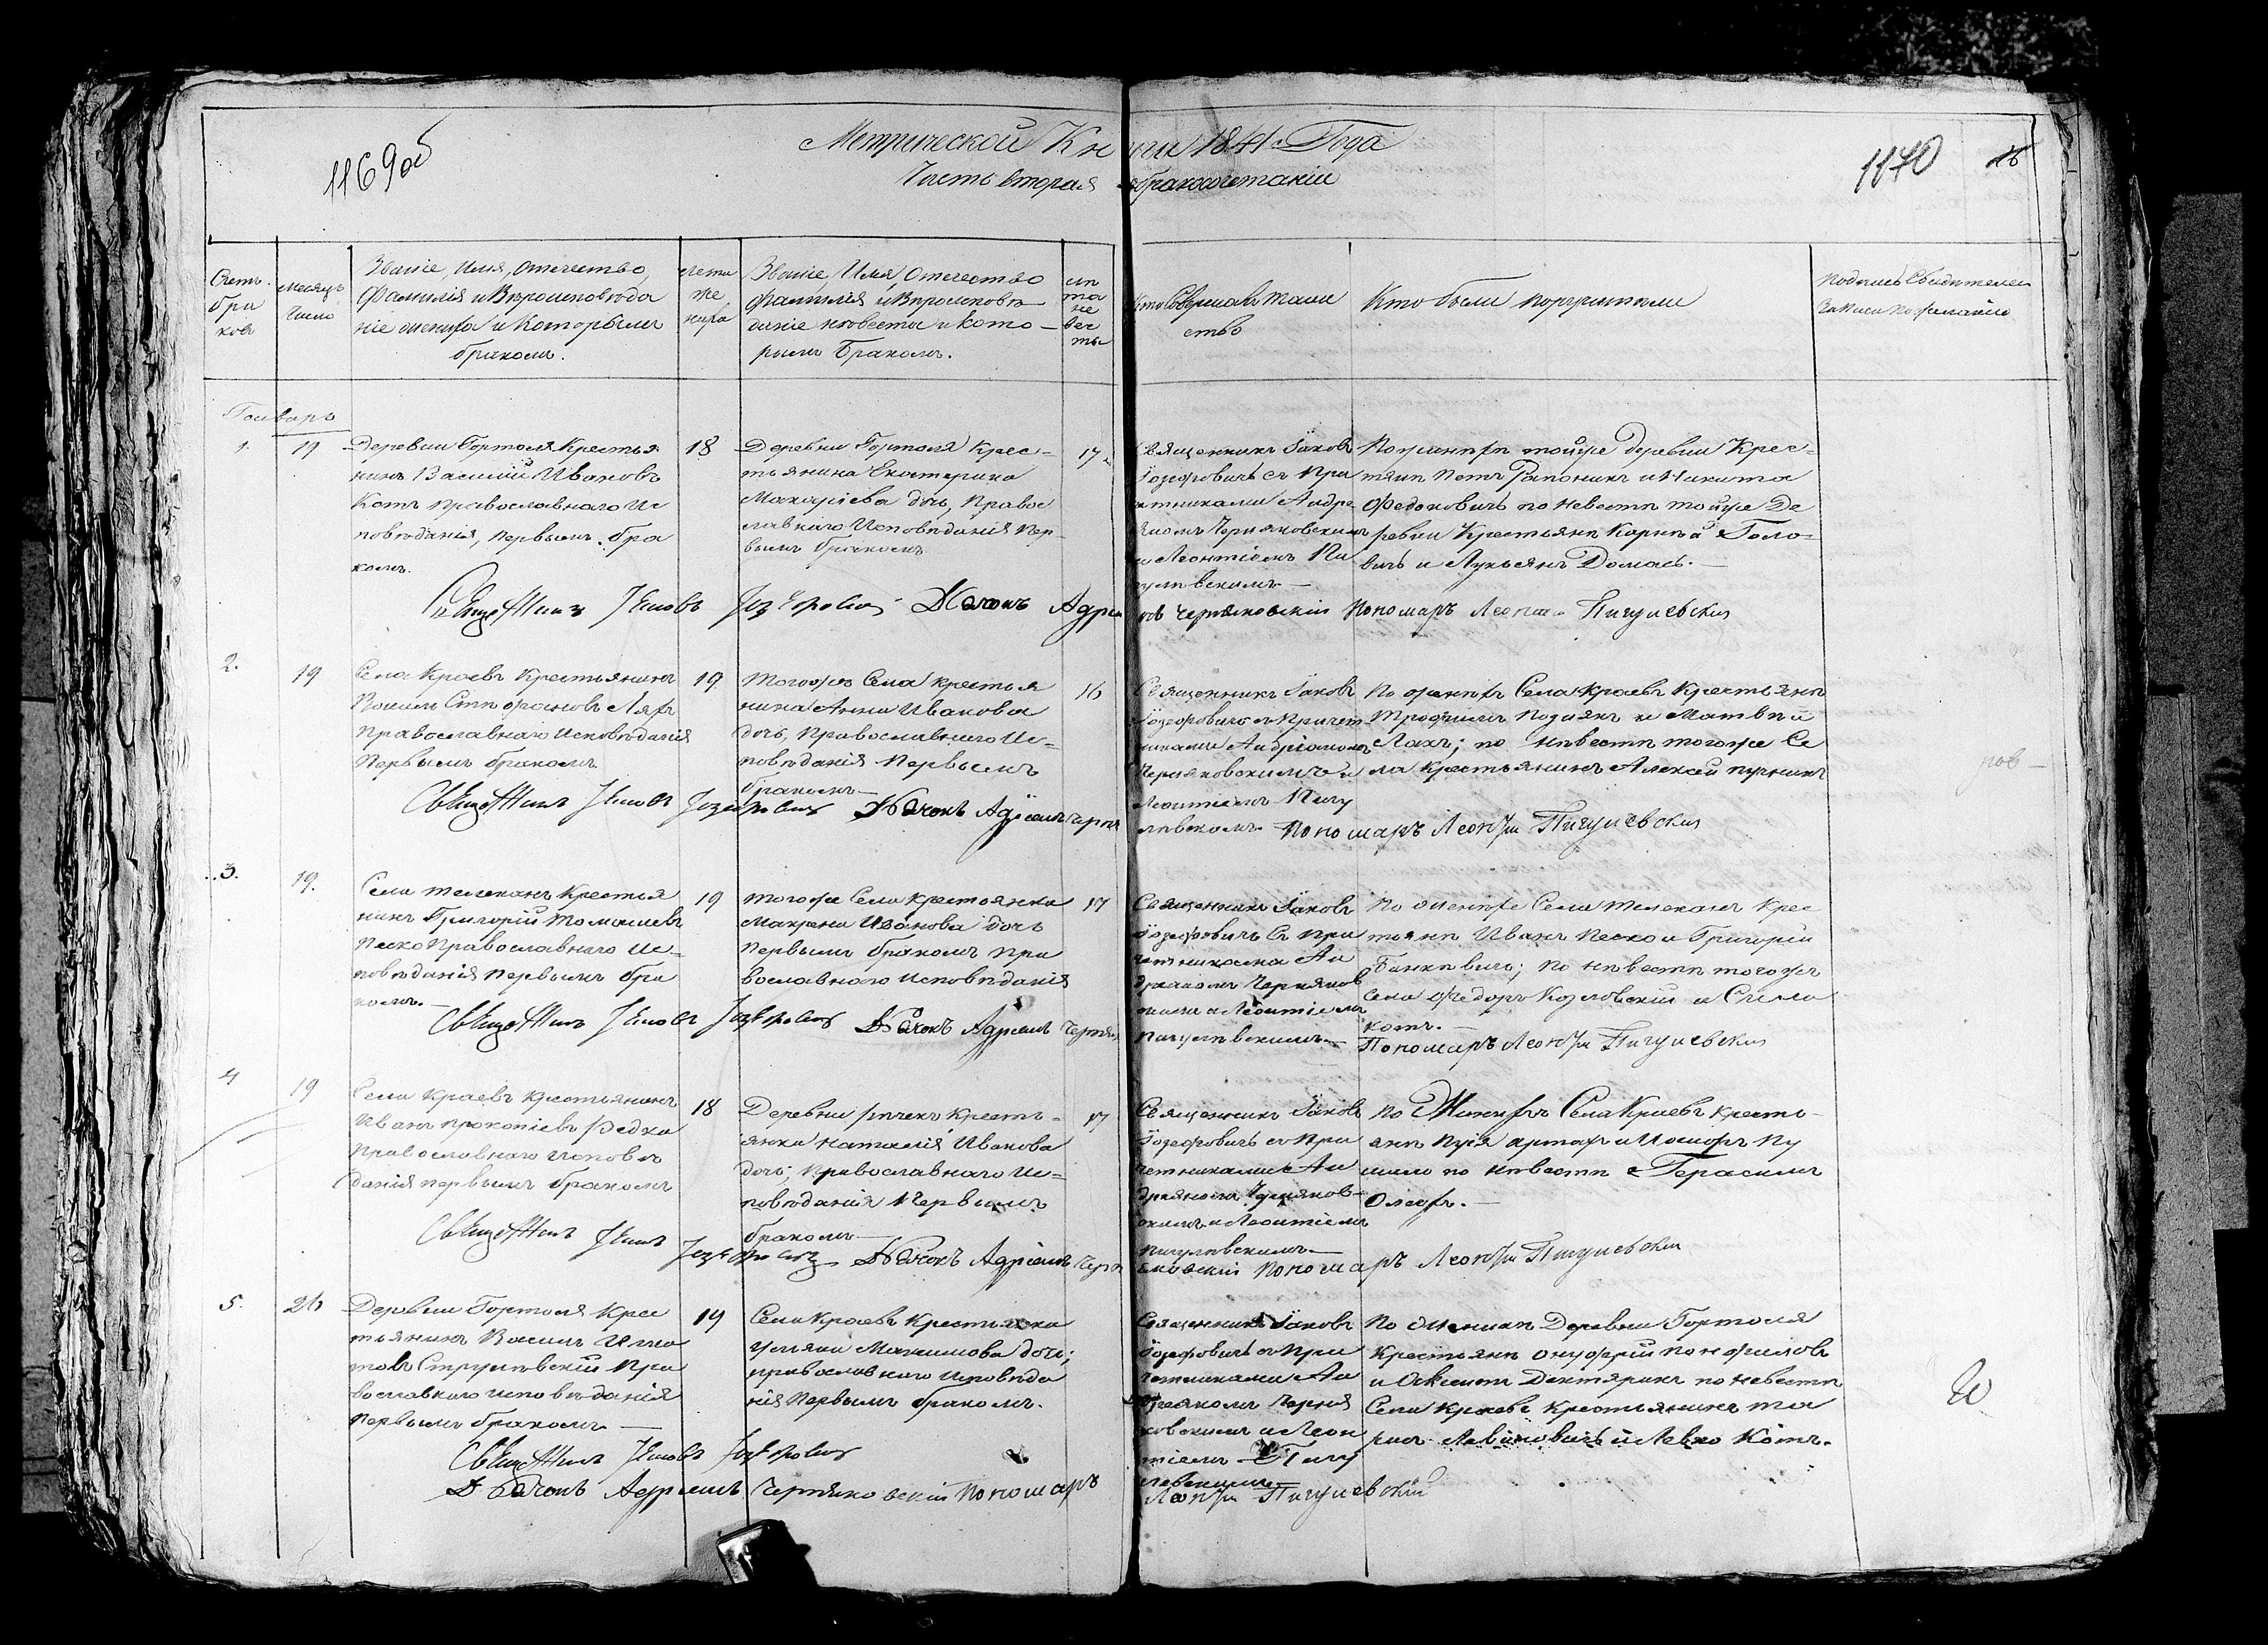 1169об
Метрической Книги 1841 Года
1170
16
Часть вторая о бракосочетаніи
Счетъ
бра
ковъ
Месяцъ
Число
Званіе, Имя, Отечество,
Фамилія и Вѣроисповѣда
ніе жениха и которымъ
бракомъ.
Лета
же
ниха
Званіе, Имя, Отечество
фамилія и Вѣроисповѣ
даніе невесты и кото-
рымъ бракомъ.
лѣ
та
не
вес
ты
Кто Совершалъ таин
ство
Кто были поручители
Подпись Свидетелей
записи по желанію
Генварь
1.
19
Деревни Гортоля Крестья
нинъ Василій Ивановъ
Котъ православнаго Ис
поведанія, первымъ бра
комъ.
18
Деревни Гортоля Крес-
тьянина Екатерина
Макаріева дочь, Правос
лавнаго Исповѣданія Пер-
вымъ бракомъ
17
Священникъ Іаковъ
Іозефовичъ съ При
четниками Андре
яномъ Черняковскимъ
и Леонтіемъ Пи
гулевскимъ
По женихѣ тойже деревни Крес-
тяне Петръ Рапоникъ и Никита
Федоковичъ по невестѣ тойже Де
ревни Крестьяне Карпъ Голо-
вичъ и Лукьянъ Домась.
Священникъ Іаковъ Іозефовичъ Дьячокъ Адріянъ Черняковскій Пономаръ Леонтій Пигулевскій
2.
19
Села Краевъ Крестьянинъ
Стефановъ Ляхъ
православнаго исповѣданія
Первымъ бракомъ
19.
Тогоже Села крестья
нина Анна Иванова
дочь, православнаго Ис-
поведанія Первымъ
бракомъ
16
Священникъ Іаковъ
Іозефовичъ съ Причет
никами Андріяномъ
Черняковскимъ и
Леонтіемъ Пигу
левскомъ
По женихѣ Села Краевъ Крестьяне
Трофимъ и Матвѣй
Ляхъ; по невестѣ тогоже Се
ла Крестьянинъ Алексей
Священникъ Іаковъ Іозефовичъ Дьячокъ Адріянъ Черня
Пономаръ Леонтій Пигулевскій
3.
19.
Села Телеханъ Крестья
нинъ Григорій Томашевъ
Песко Православнаго Ис-
поведанія первымъ бра
комъ.
19
Тогоже Села Крестьянка
Макрена Иванова дочь
первымъ бракомъ пра
вославнаго исповѣданія
17
Священникъ Іаковъ
Іозефовичъ съ при
четниками Ан
дріаномъ Черняков
скимъ и Леонтіемъ
Пигулевскимъ
По женихѣ Села Телеханъ Крес
тьяне Иванъ Песко и Григорій
по невестѣ тогожъ
села Федоръ Козловскій и Сила
котъ.
Священникъ Іаковъ Іозефовичъ Дьячокъ Адріянъ Черня
Пономаръ Леонтій Пигулевскій
4
19
Села Краевъ крестьянинъ
Иванъ прокопіевъ Редко
православнаго исповѣ
данія первымъ бракомъ
18
Деревни Рѣчекъ Кресть-
янка Наталія Иванова
дочь; православнаго Ис-
поведанія Первымъ
бракомъ
17
Священникъ Іаковъ
Іозефовичъ съ При
четниками Ан
дреяномъ Черняков-
скимъ и Леонтіемъ
пигулевскимъ
По Женихѣ Села Краевъ кресть-
яне и Іосифъ
по невестѣ Герасимъ
Священникъ Іаковъ Іозефовичъ Дьячокъ Адріянъ Черн
яковскій Пономаръ Леонтій Пигулевскій
5.
26
Деревни Гортоля Крес
тьянинъ Василь Игна
товъ Струневскій Пра
вославнаго исповѣданія
первымъ бракомъ
19
Села Краевъ Крестьянка
Ульяна Максимова дочь;
православнаго исповѣда
нія Первымъ бракомъ.
Священникъ Іаковъ
Іозефовичъ съ При
четниками Ан
дреяномъ Черня
ковскимъ и Леон
тіемъ Пигу
левскимъ
По женихѣ Деревни Гортоля
Крестьяне Онуфрій
и Дектярикъ по невестѣ
Села Краевъ Крестьянинъ
и Левко Котъ.
Священникъ Іаковъ Іозефовичъ
Дьячокъ Адріянъ Черняковскій Пономаръ
Леонтій Пигулевскій